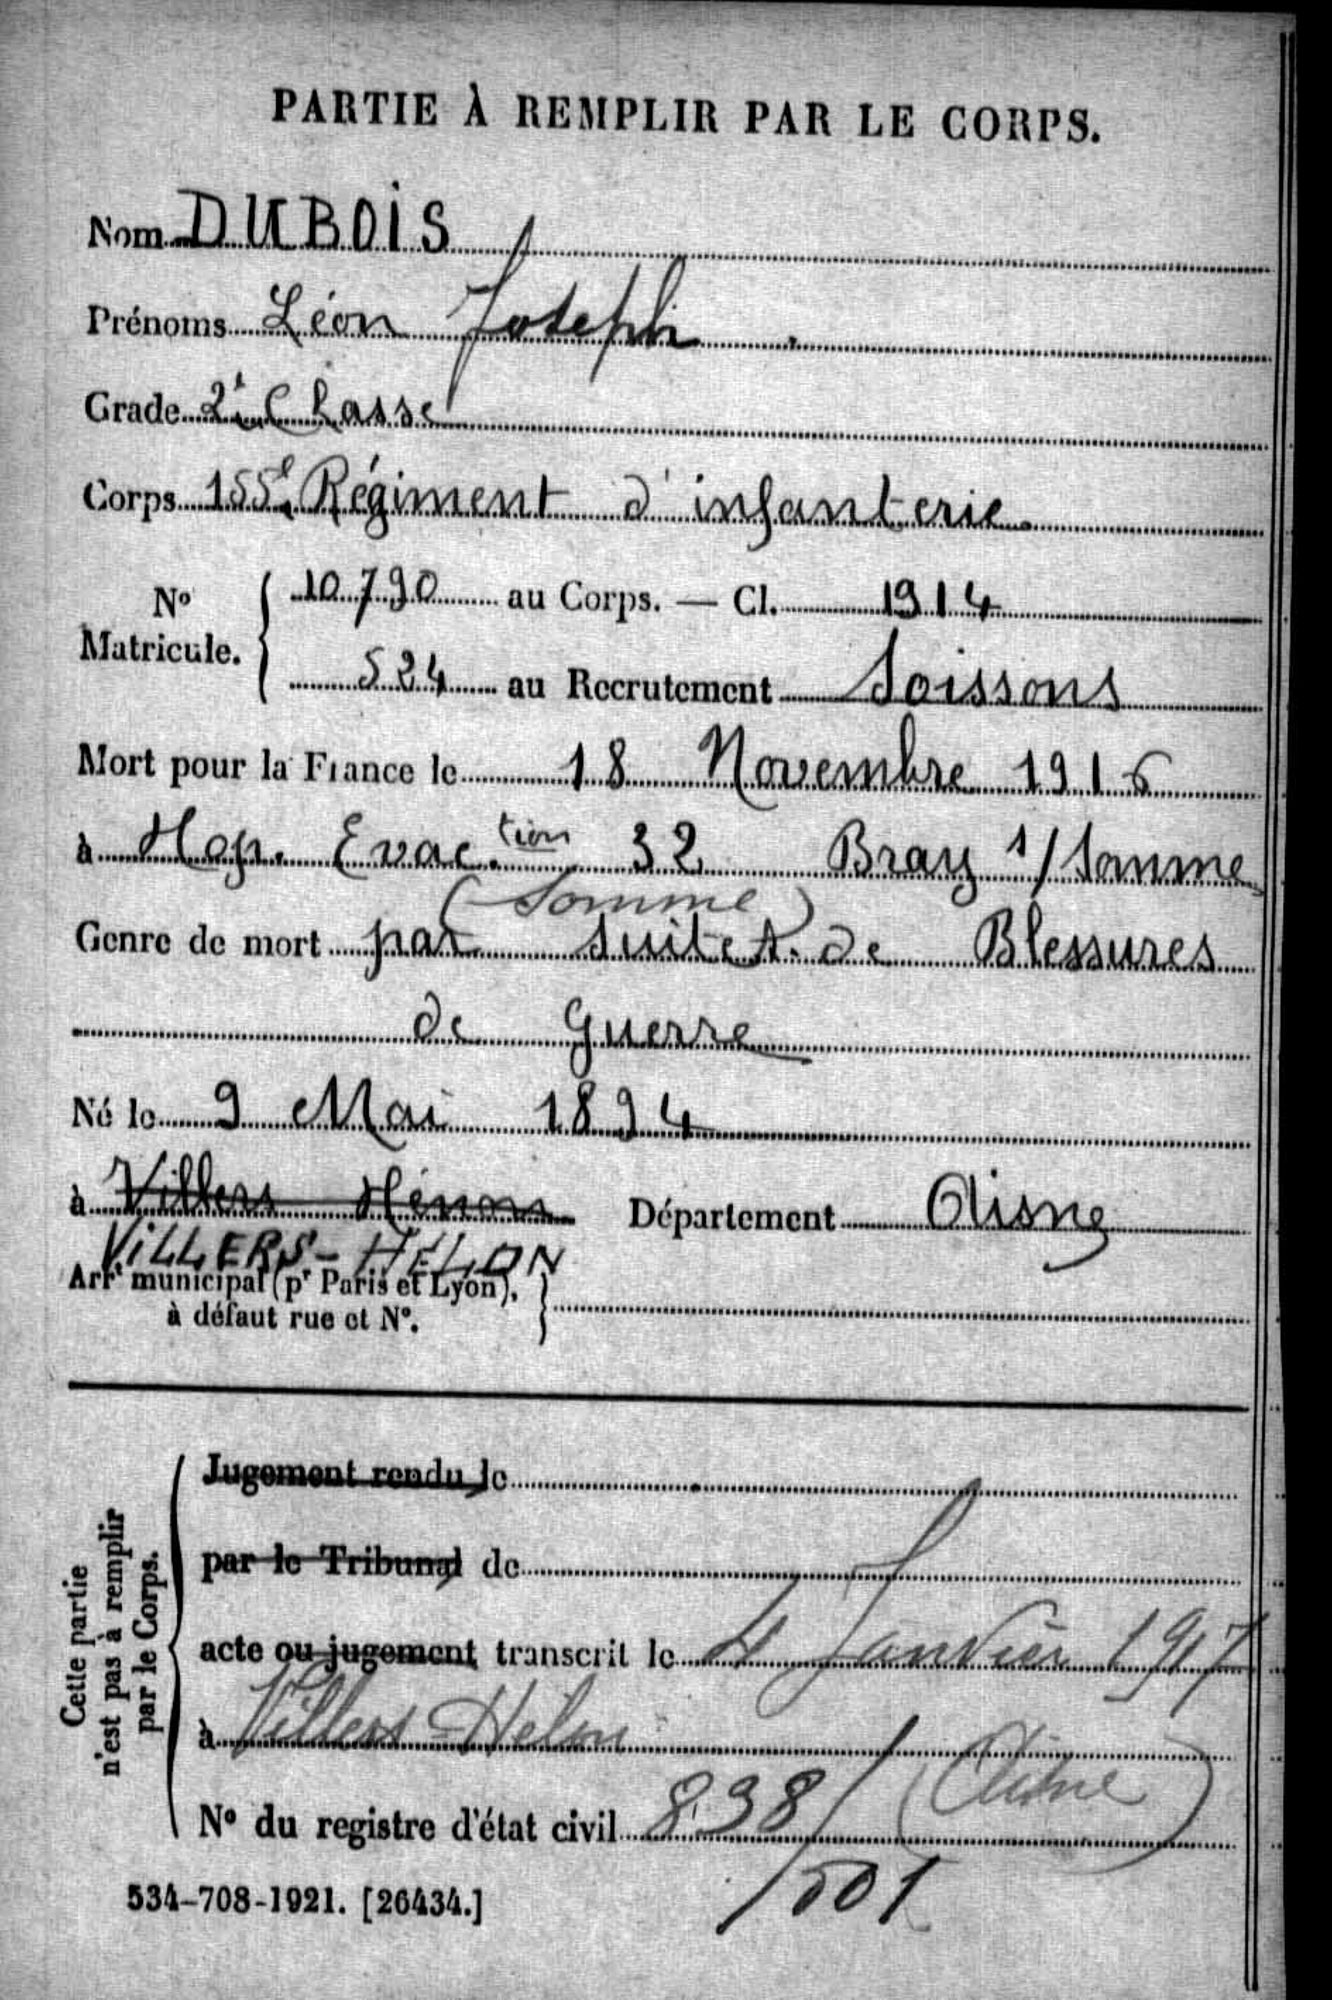 PARTIE À REMPLIR PAR LE CORPS.
Nom DUBOIS
Prénoms Léon Joseph
Grade 2e Classe
Corps 155e Régiment d'infanterie
No Matricule. { 10790 au Corps. — Cl. 1914
524 au Recrutement Soissons
Mort pour la France le 18 Novembre 1916
à Hop. Evac.tion 32 Bray s/Somme
(Somme)
Genre de mort par suites de Blessures
de Guerre
Né le 9 Mai 1894
à Villers Hénon Département Aisne
VILLERS-HÉLON
Arrt municipal (pr Paris et Lyon),
à défaut rue et No.
Cette partie
n'est pas à remplir
par le Corps.
Jugement rendu le
par le Tribunal de
acte ou jugement transcrit le 4 Janvier 1917
à Villers-Hélon
(Aisne)
No du registre d'état civil 838/
/501
534-708-1921. [26434.]